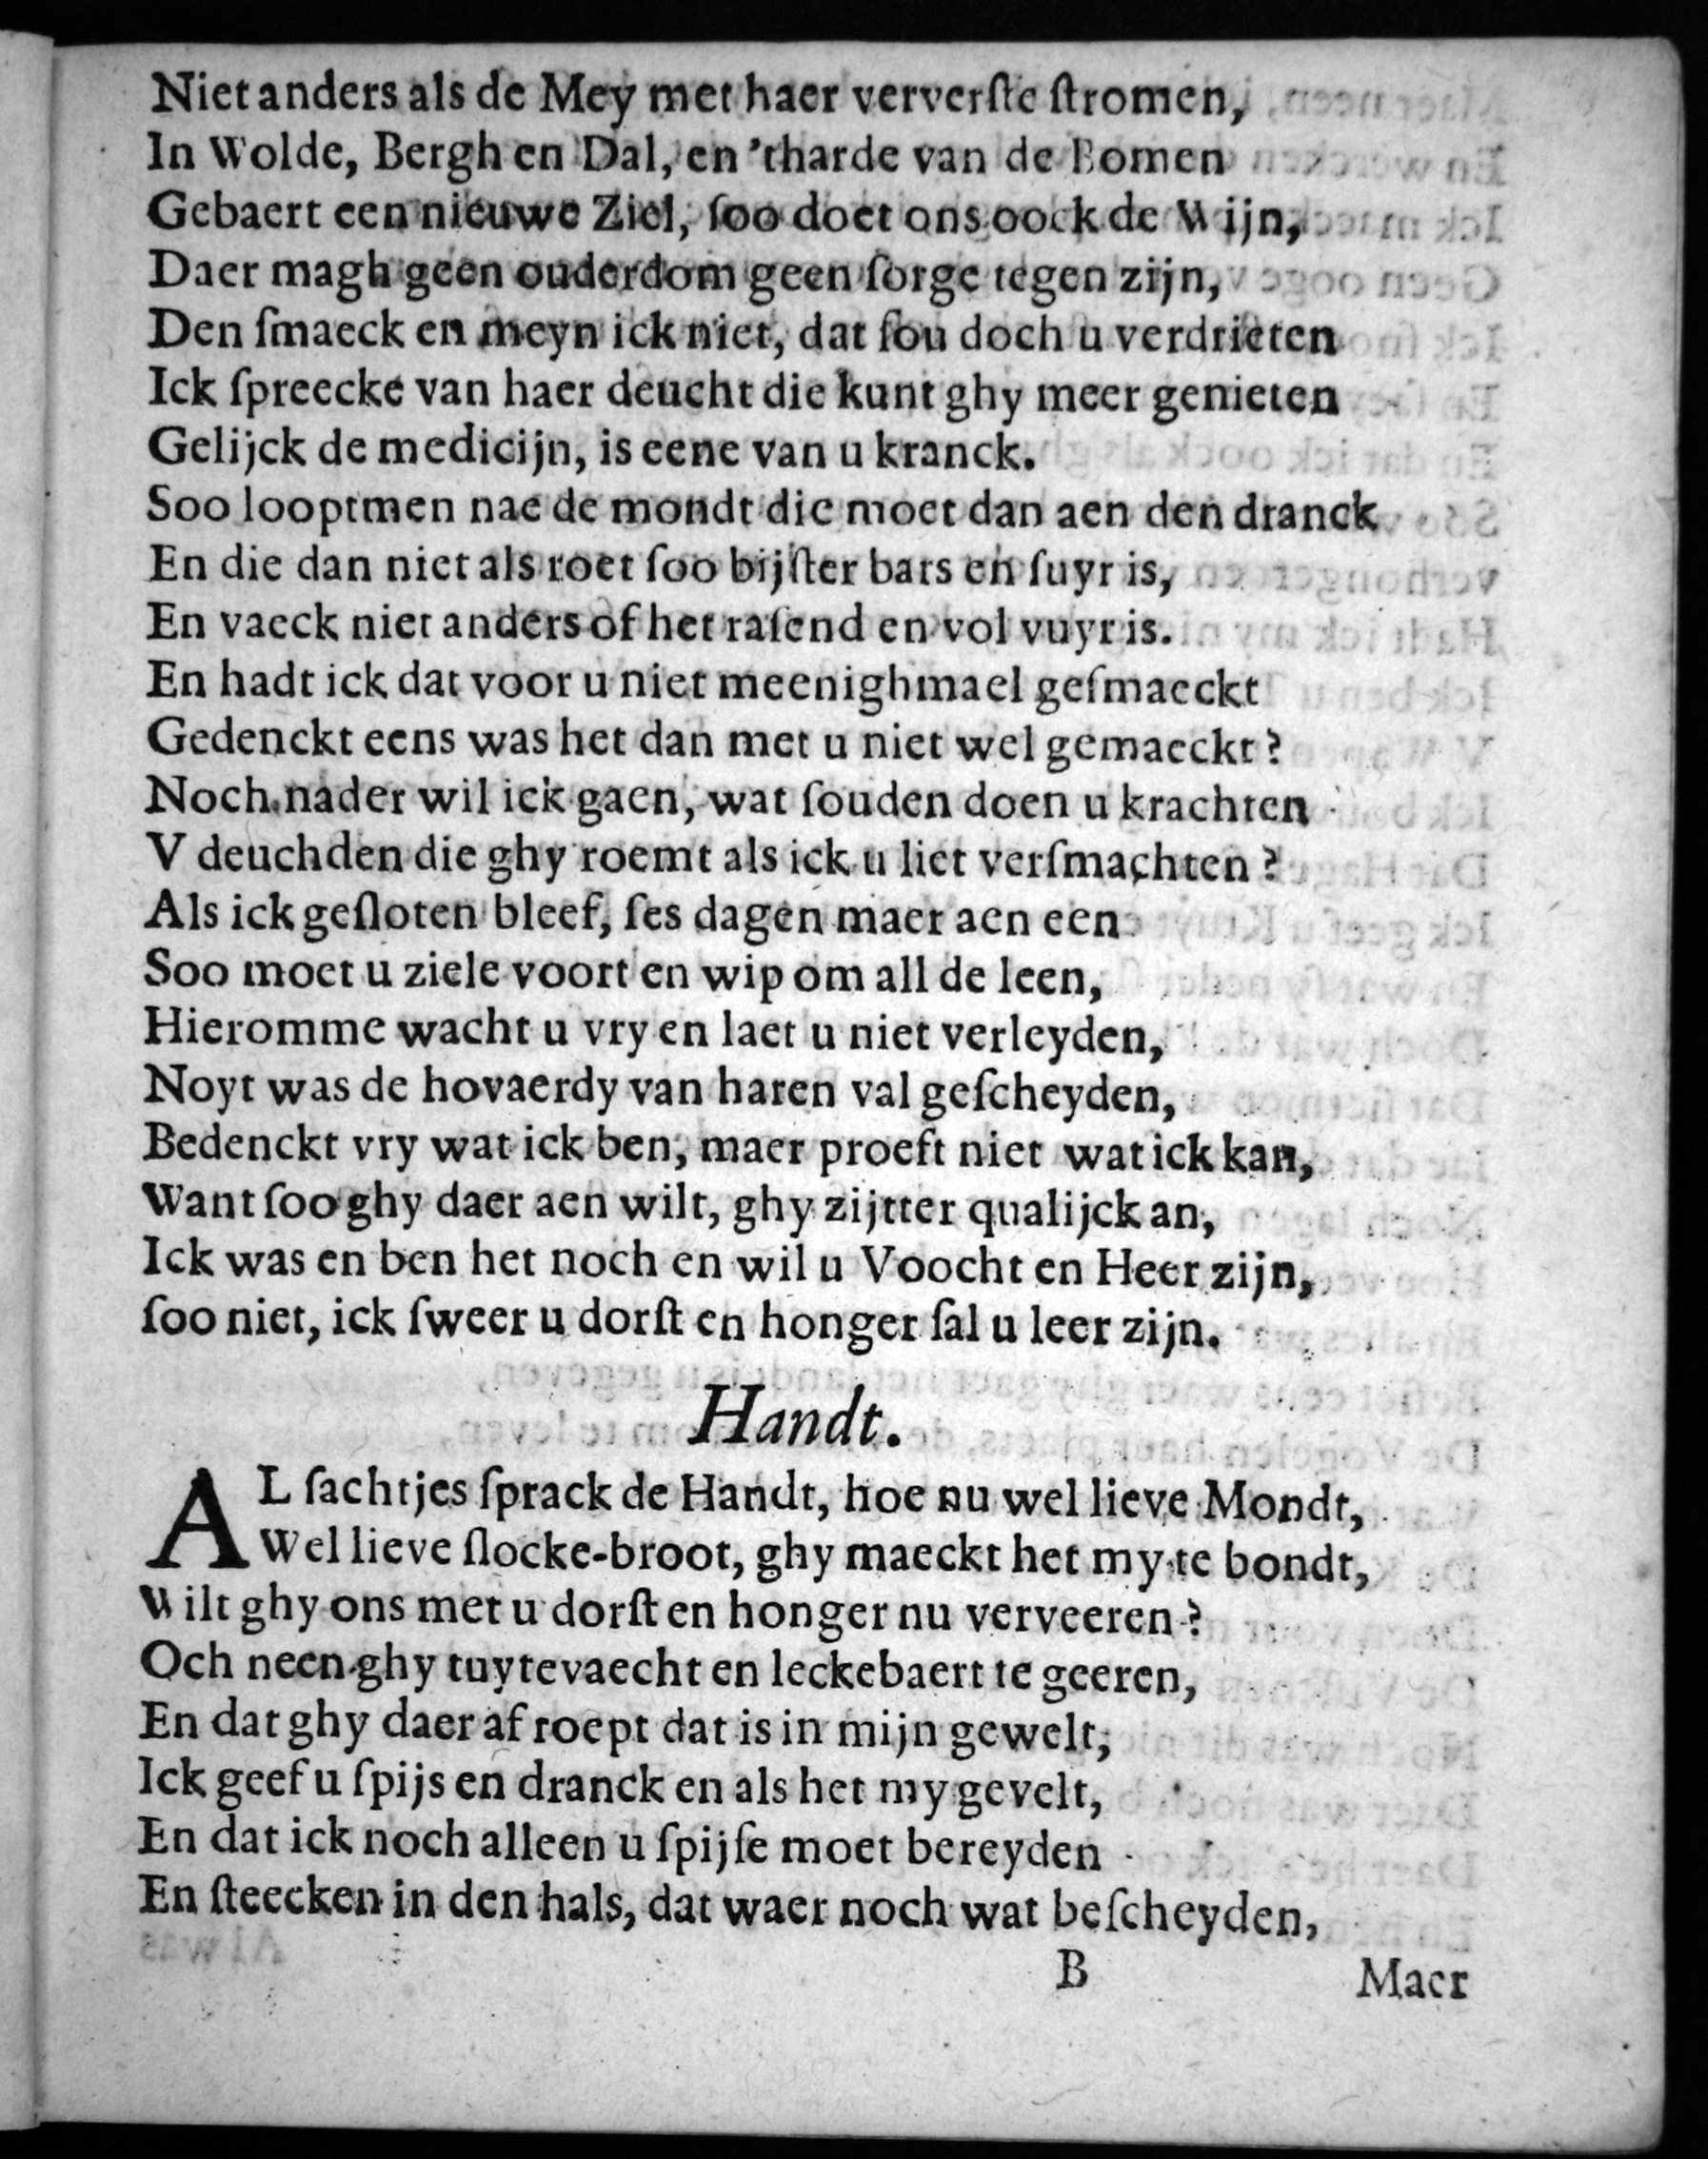 Niet anders als de Mey met haer ververſte ſtromen,
In Wolde, Bergh en Dal, en 'tharde van de Bomen
Gebaert een nieuwe Ziel, ſoo doet ons oock de Wijn,
Daer magh geen ouderdom geen ſorge tegen zijn,
Den ſmaeck en meyn ick niet, dat ſou doch u verdrieten
Ick ſpreecke van haer deucht die kunt ghy meer genieten
Gelijck de medicijn, is eene van u kranck.
Soo looptmen nae de mondt die moet dan aen den dranck
En die dan niet als roet ſoo bijſter bars en ſuyr is,
En vaeck niet anders of het raſend en vol vuyr is.
En hadt ick dat voor u niet meenighmael geſmaeckt
Gedenckt eens was het dan met u niet wel gemaeckt?
Noch nader wil ick gaen, wat ſouden doen u krachten
V deuchden die ghy roemt als ick u liet verſmachten?
Als ick geſloten bleef, ſes dagen maer aen een
Soo moet u ziele voort en wip om all de leen,
Hieromme wacht u vry en laet u niet verleyden,
Noyt was de hovaerdy van haren val geſcheyden,
Bedenckt vry wat ick ben, maer proeft niet wat ick kan,
Want ſoo ghy daer aen wilt, ghy zijtter qualijck an,
Ick was en ben het noch en wil u Voocht en Heer zijn,
ſoo niet, ick ſweer u dorſt en honger ſal u leer zijn.
Handt.
AL ſachtjes ſprack de Handt, hoe nu wel lieve Mondt,
Wel lieve ſlocke-broot, ghy maeckt het my te bondt,
Wilt ghy ons met u dorſt en honger nu verveeren?
Och neen ghy tuytevaecht en leckebaert te geeren,
En dat ghy daer af roept dat is in mijn gewelt,
Ick geef u ſpijs en dranck en als het my gevelt,
En dat ick noch alleen u ſpijſe moet bereyden
En ſteecken in den hals, dat waer noch wat beſcheyden,
B Maer